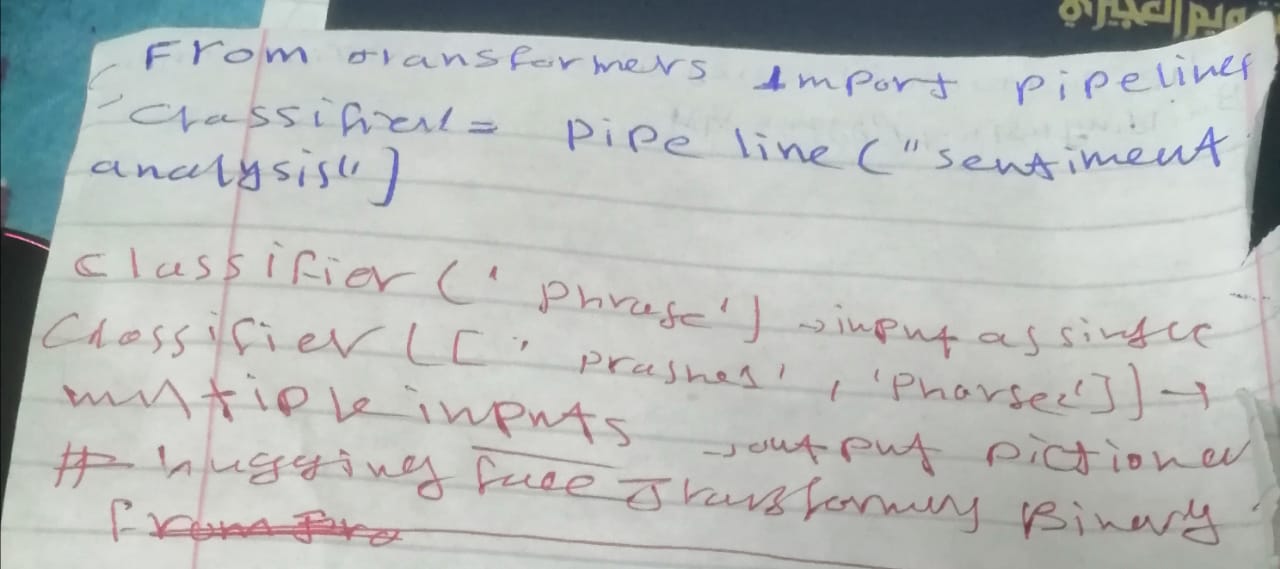 تقويم العجيري
From transformers import pipelines
Classifier = pipe line ("sentiment
analysis")
classifier (' phrase') → input as single
Classifier ([ " prashes' , 'Pharse2']) →
multiple inputs → output Dictioner
# hugging face Transformers Binary
From Pro